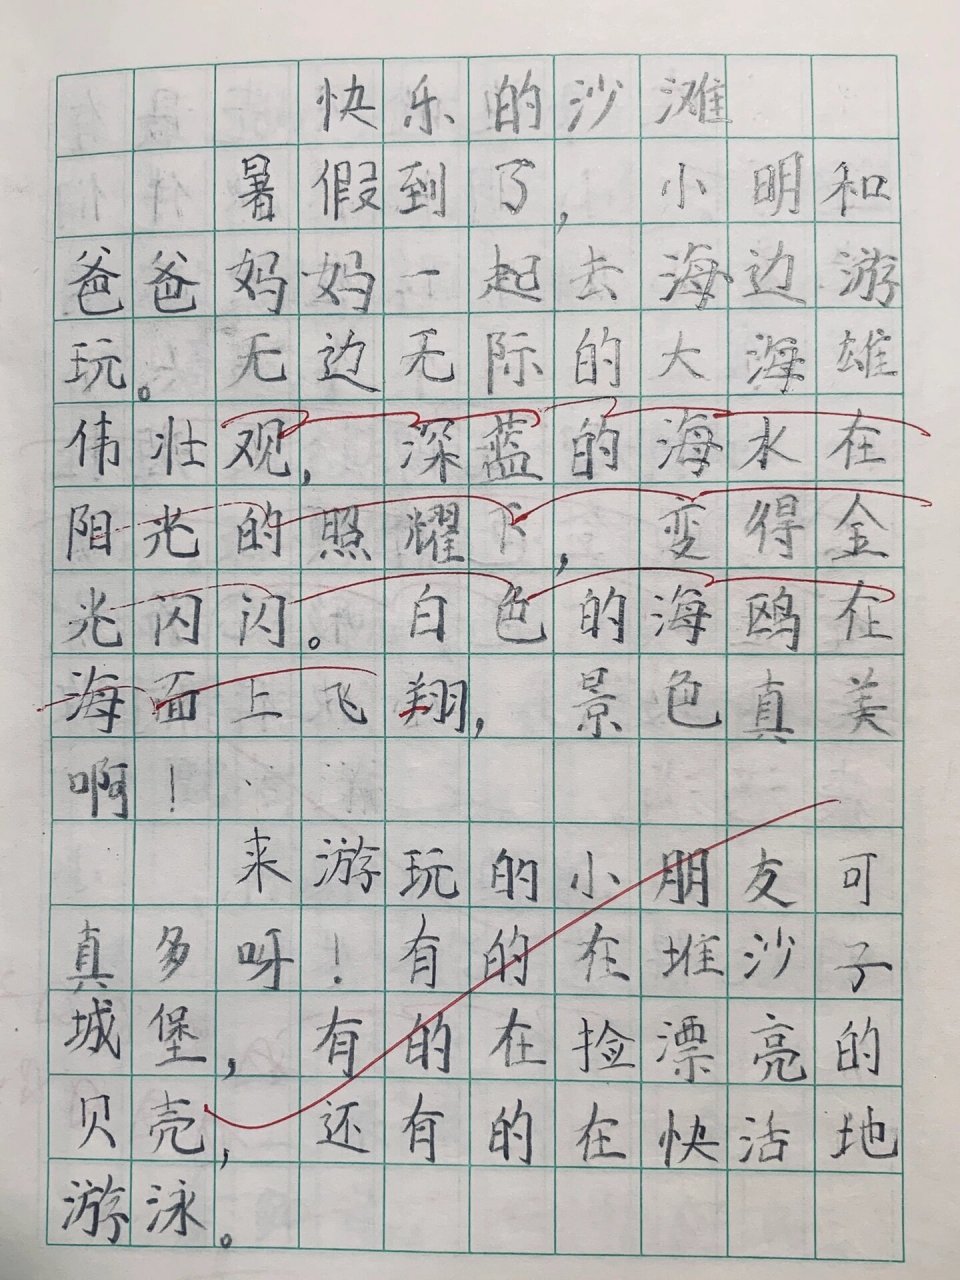 快乐的沙滩
暑假到了,小明和
爸爸妈妈一起去海边游
玩。无边无际的大海雄
伟壮观,深蓝的海水在
阳光的照耀下,变得金
光闪闪。白色的海鸥在
海面上飞翔,景色真美
啊!
来游玩的小朋友可
真多呀!有的在堆沙子
城堡,有的在捡漂亮的
贝壳,还有的在快活地
游泳。